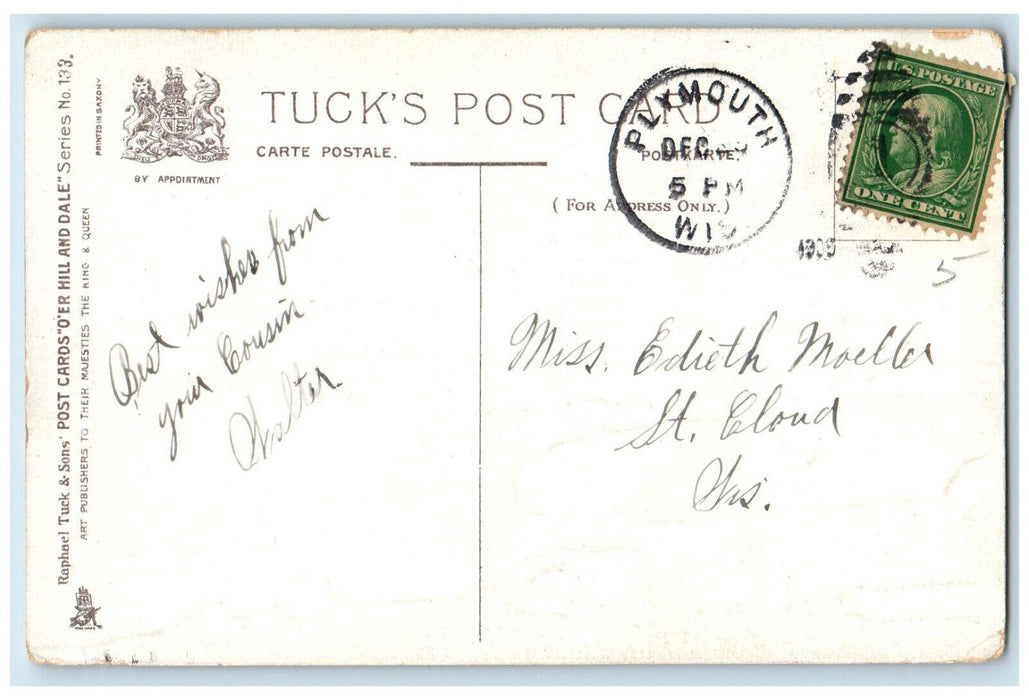 Raphael Tuck & Sons' POST CARDS "O'ER HILL AND DALE" Series No. 133.
ART PUBLISHERS TO THEIR MAJESTIES THE KING & QUEEN
PRINTED IN SAXONY
BY APPOINTMENT
TUCK'S POST CARD
CARTE POSTALE.
POSTKARTE.
(FOR ADDRESS ONLY.)
PLYMOUTH
DEC
5 PM
WIS
1909
U.S. POSTAGE
ONE CENT
5
Best wishes from
your Cousin
Walter
Miss. Edieth Moeller
St. Cloud
Wis.